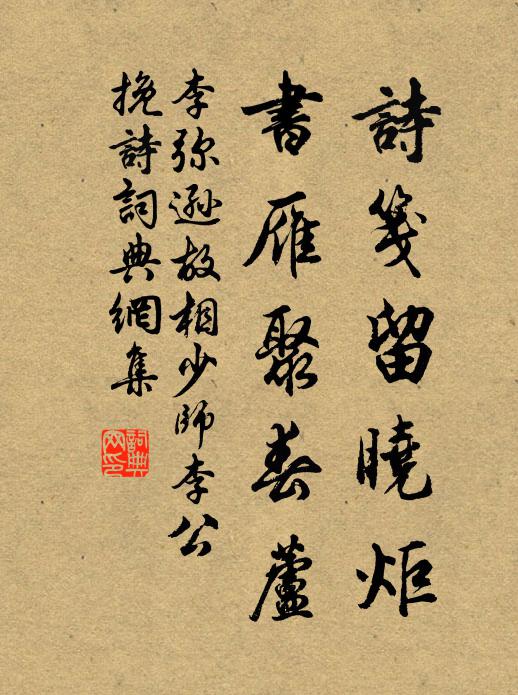 詩箋留曉炬
書雁聚春蘆
李弥遜故相少師李公
挽詩詞典網集
詞典网印